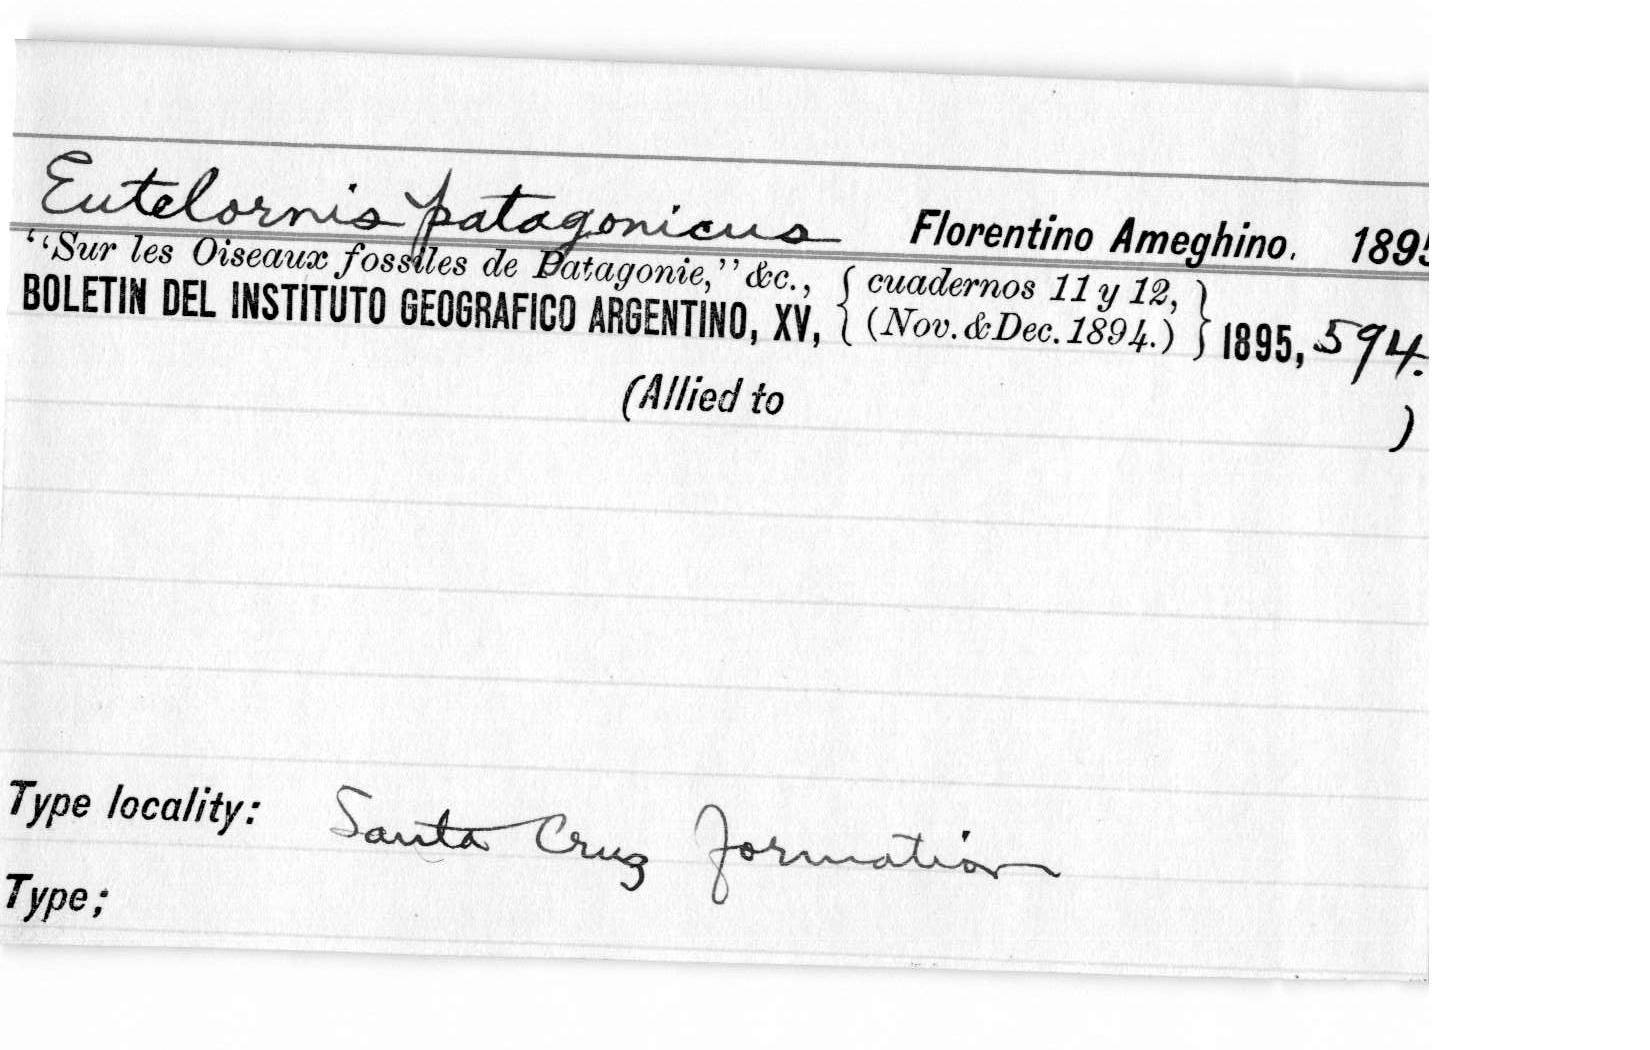 Eutelornis patagonicus Florentino Ameghino. 1895
“Sur les Oiseaux fossiles de Patagonie,” &c., { cuadernos 11 y 12, }
BOLETIN DEL INSTITUTO GEOGRAFICO ARGENTINO, XV, { (Nov. & Dec. 1894.) } 1895, 594.
(Allied to )
Type locality: Santa Cruz formation
Type;